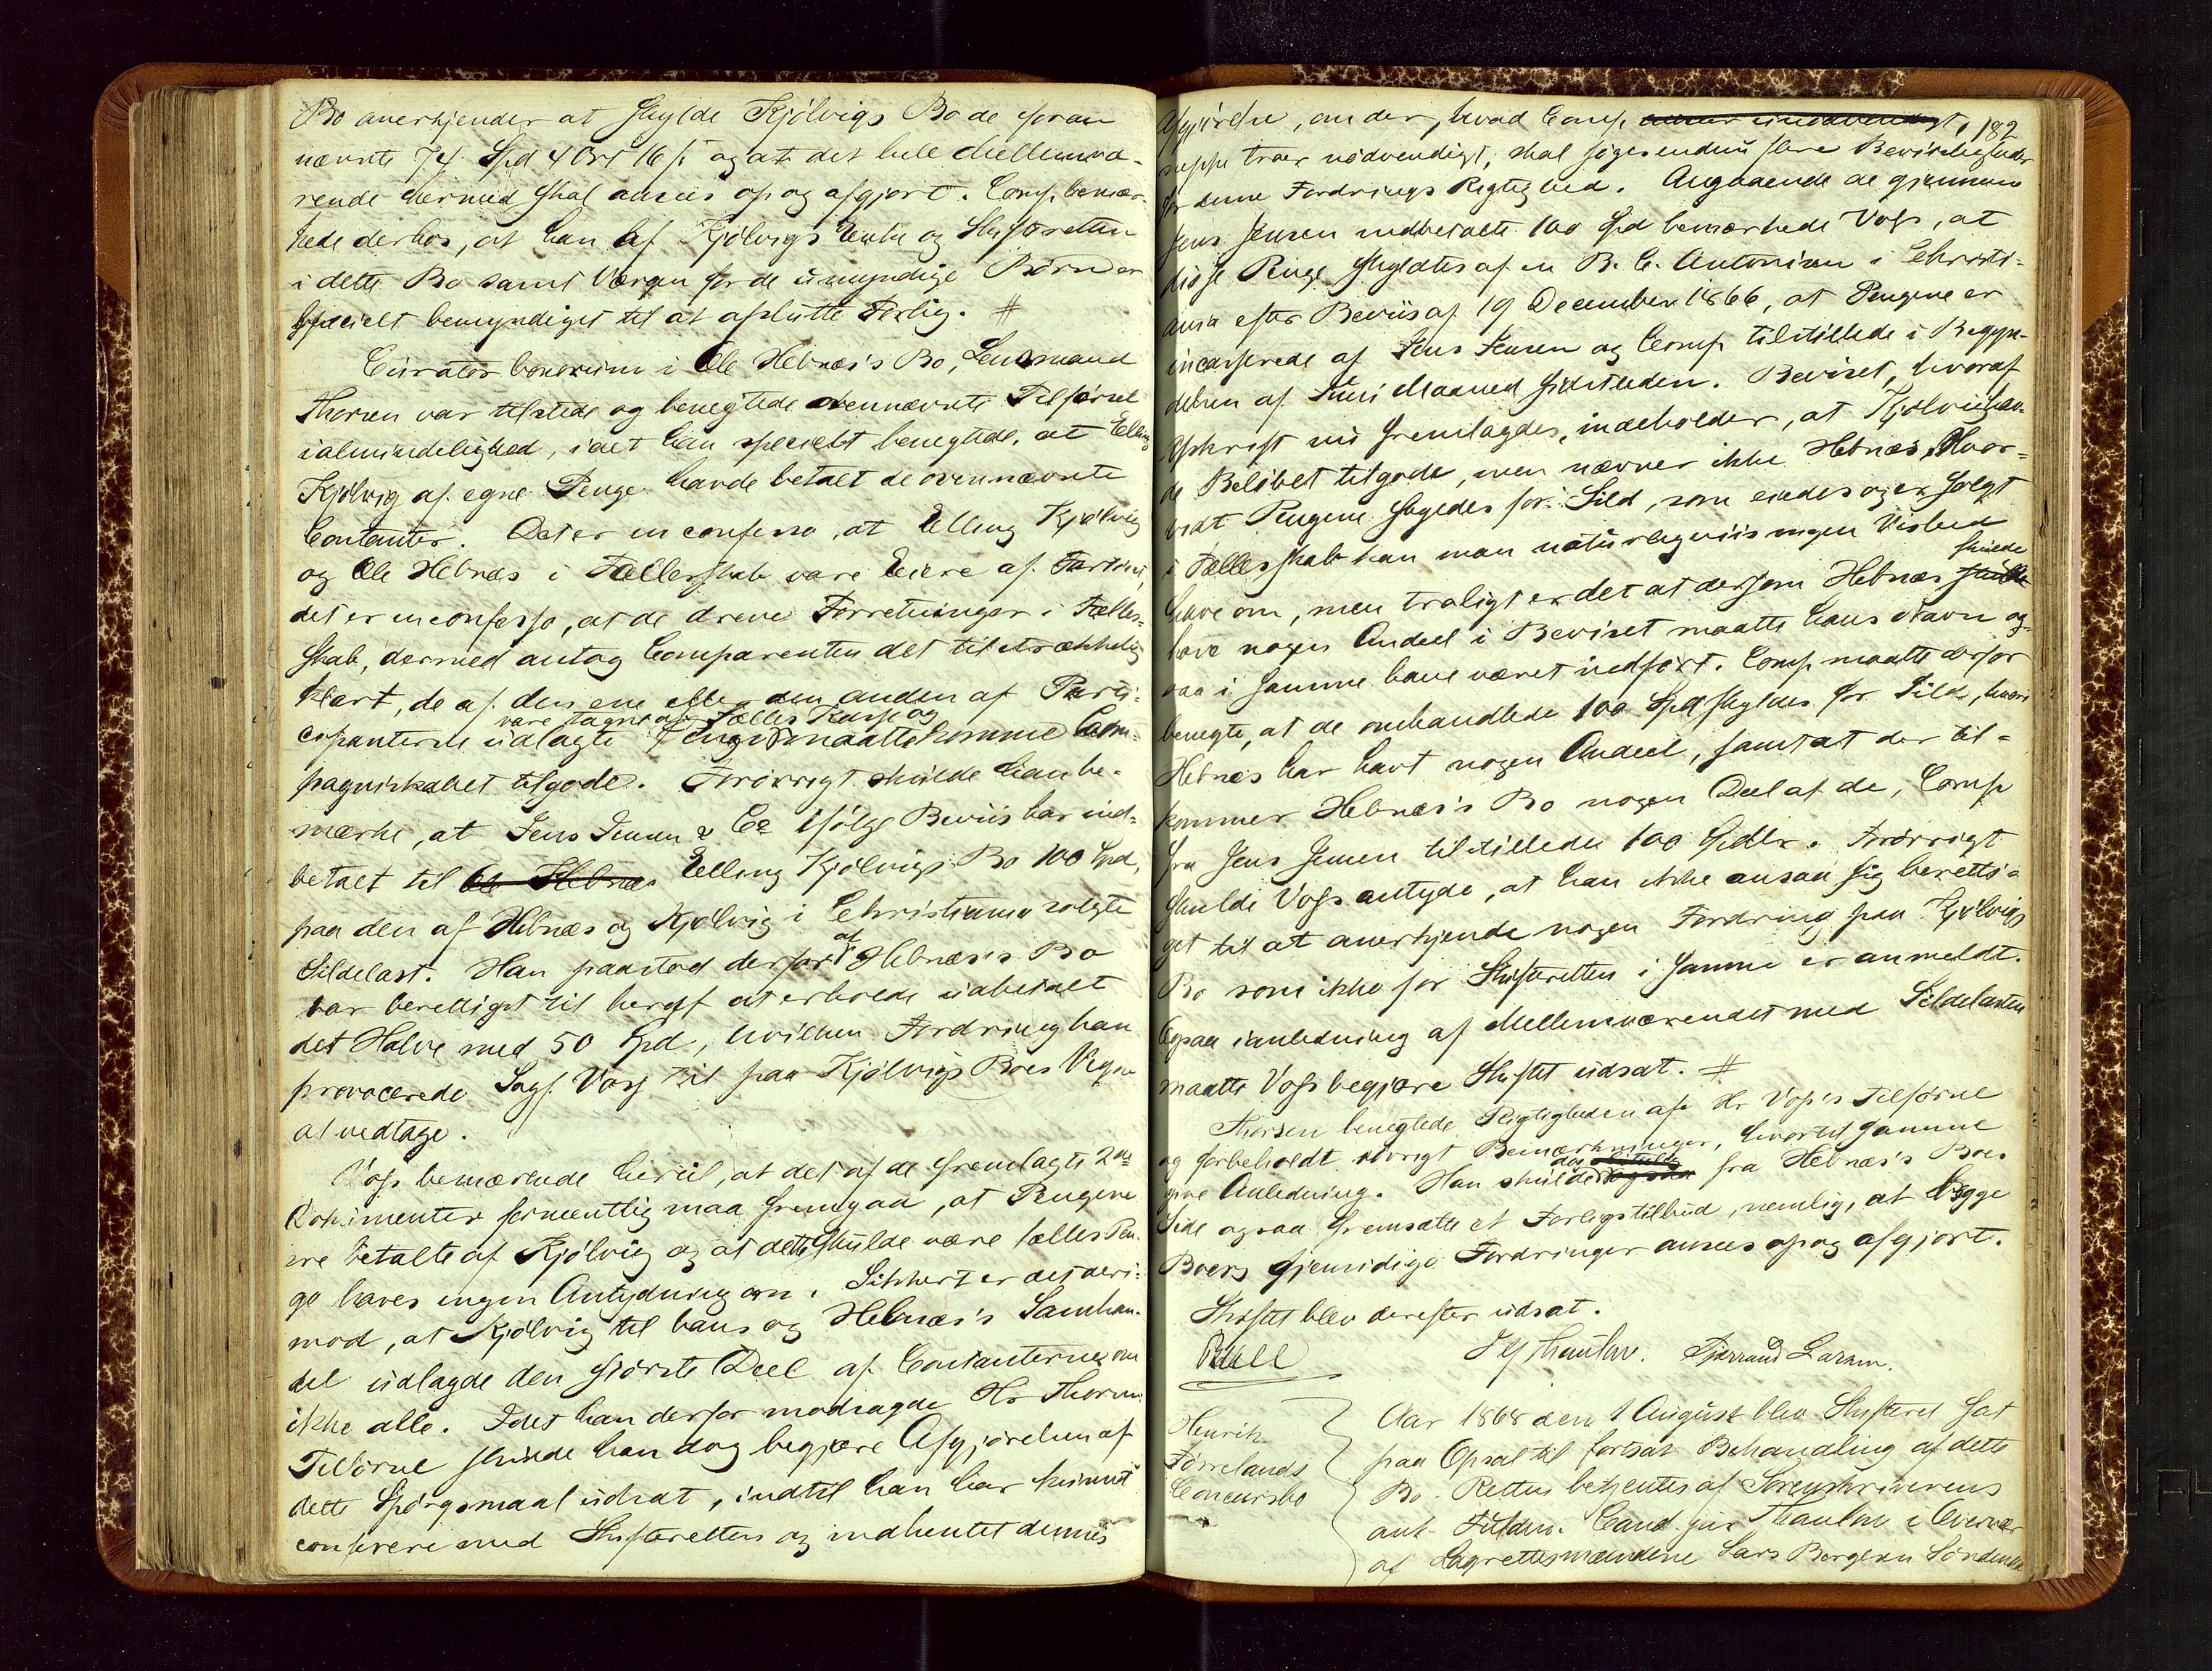 Bo anerkjender at skylde Kjølvigs Bo de foran
nævnte 74 Spd 4 Ort 16 s og at det hele Mellemvæ-
rende hermed skal ansees op og afgjort. Comp. bemær-
kede derhos, at han af Kjølvigs Enke og Skifteretten
i dette Bo samt Værgen for de umyndige Børn er
specielt bemyndiget til at afslutte Forlig. #
Curator bonorum i Ole Hebnæs's Bo, Lensmand
Thorsen var tilstede og benegtede ovennævnte Tilførsel
ialmindelighed, idet han specielt benegtede, at Elling
Kjølvig af egne Penge havde betalt de ovennævnte
Contanter. Det er in confesso, at Elling Kjølvig
og Ole Hebnæs i Fællesskab vare Eiere af Fartøiet,
det er in confesso, at de dreve Forretninger i Fælles-
skab, dermed antog Comparenten det tilstrækkelig
klart, de af den ene eller den anden af Parti-
vare tagne af Fælles Kasse og
cipanterne udlagte Penge maatte komme Com-
pagniskabet tilgode. Forøvrigt skulde han be-
mærke, at Jens Jensen & Co ifølge Beviis har ind-
betalt til Ole Hebnæs Elling Kjølvigs Bo 100 Spd,
paa den af Hebnæs og Kjølvig i Christiania solgte
Sildelast. Han paastod derfor at Hebnæs's Bo
var berettiget til heraf at erholde udbetalt
det Halve med 50 Spd, hvilken Fordring han
provocerede Sagf. Voss til paa Kjølvigs Boes Vegne
at vedtage.
Voss bemærkede hertil, at det af de fremlagte 2de
Dokumenter formentlig maa fremgaa, at Pengene
ere betalte af Kjølvig og at dette skulde være fælles Pen-
ge haves ingen Antydning om. Sikkert er det deri-
mod, at Kjølvig til hans og Hebnæs's Samhan-
del udlagde den største Deel af Contanterne, om
ikke alle. Idet han derfor modsagde Hr Thorsens
Tilførsel skulde han dog begjære Afgjørelsen af
dette Spørgsmaal udsat, indtil han har kunnet
conferere med Skifteretten og indhentet dennes
182
Afgjørelse, om der, hvad Comp.
neppe troer nødvendigt, skal søges endnu flere Bevisligheder
for denne Fordrings Rigtighed. Angaaende de gjennem
Jens Jensen indbetalte 100 Spd bemærkede Voss, at
disse Penge skyldtes af en B. C. Antonisen i Christi-
ania efter Beviis af 19 December 1866, at Pengene er
incasserede af Jens Jensen og Comp. tilstillede i Begyn-
delsen af Juni Maaned sidstleden. Beviset, hvoraf
Afskrift nu fremlagdes, indeholder, at Kjølvig hav-
de Beløbet tilgode, men nævner ikke Hebnæs, Hvor-
vidt Pengene skyldes for Sild, som eiedes og er solgt
i Fællesskab kan man naturligviis ingen Vished
have om, men troligt er det at dersom Hebnæs skulde
have nogen Andeel i Beviset maatte hans Navn og-
saa i samme have været indført. Comp. maatte derfor
benegte, at de omhandlede 100 Spd skyldes for Sild, hvori
Hebnæs har havt nogen Andeel, samt at der til-
kommer Hebnæs's Bo nogen Deel af de, Comp.
fra Jens Jensen tilstillede 100 Spdlr. Forøvrigt
skulde Voss antyde, at han ikke ansaa sig beretti-
get til at anerkjende nogen Fordring paa Kjølvigs
Bo som ikke for Skifteretten i samme er anmeldt.
Ogsaa i anledning af Mellemværendet med Sildelasten
maatte Voss begjære Skiftet udsat. #
Thorsen benegtede Rigtigheden af Hr Voss's Tilførsel
og forbeholdt iøvrigt Bemærkninger, hvortil samme
give Anledning. Han skulde dog fra Hebnæs's Boes
Side ogsaa fremsætte et Forligstilbud, nemlig, at begge
Boers gjensidige Fordringer ansees op og afgjort.
Skiftet blev derefter udsat.
Thaulow. Tjærrand Larsen.
Henrik
Førrelands
Concursbo
Aar 1868 den 1 August blev Skifteret sat
paa Opsal til fortsat Behandling af dette
Bo. Retten betjentes af Sorenskriverens
aut. Fuldm. Cand. jur. Thaulow i Overvær
af Lagrettesmændene Lars Bergesen Søndenaa